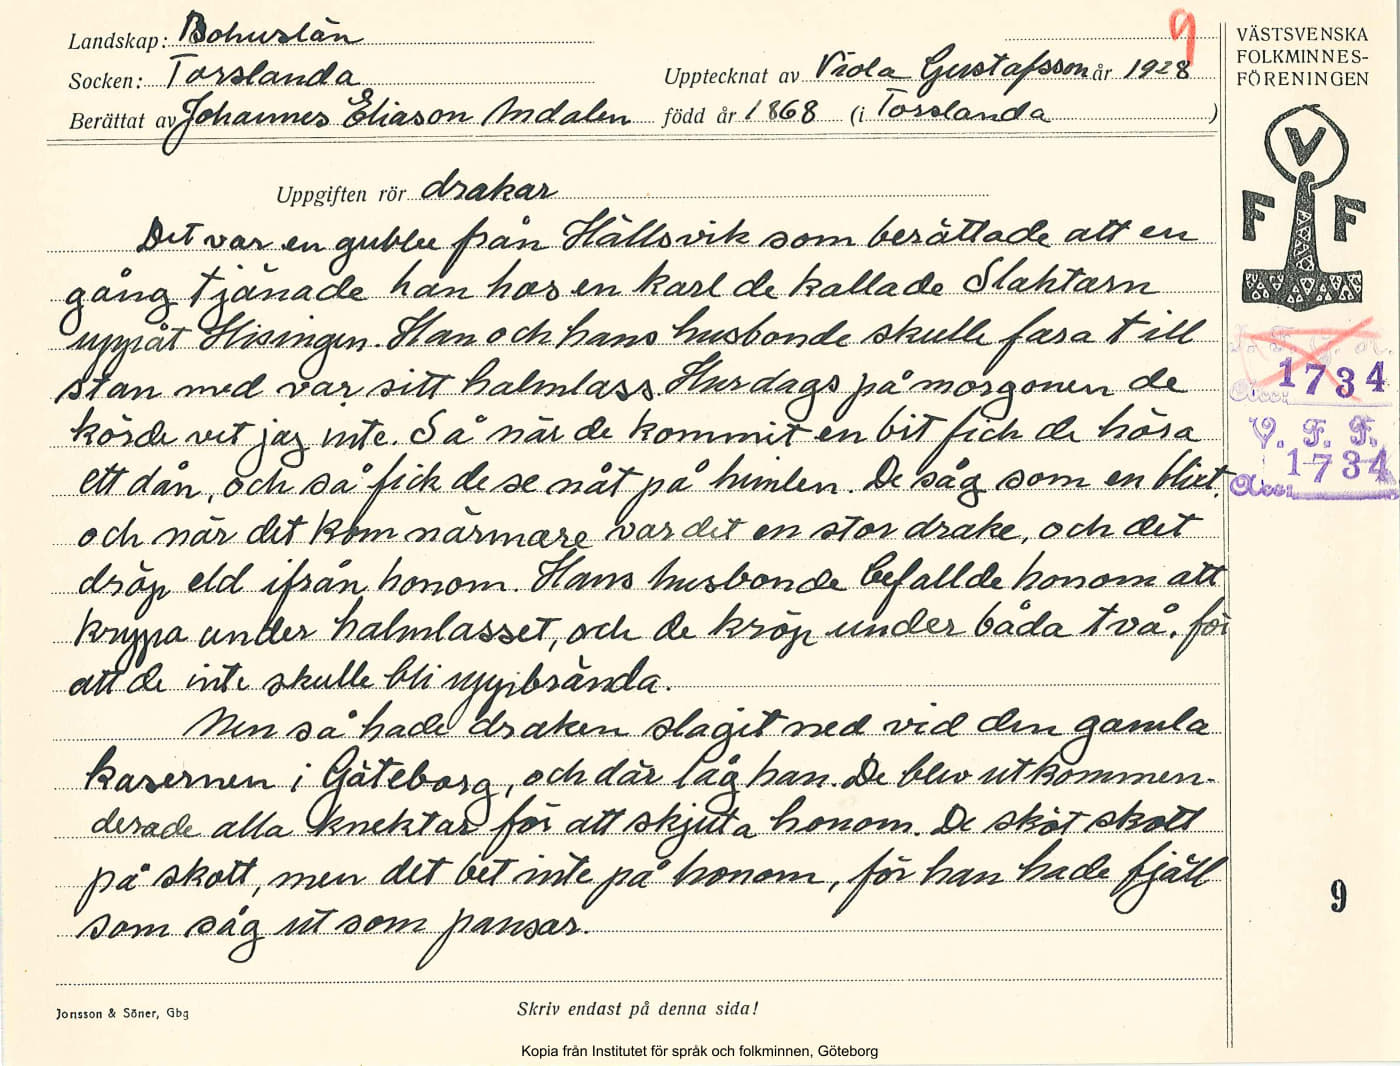 Landskap: Bohuslän
Socken: Torslanda
Upptecknat av Viola Gustafsson år 1928
Berättat av Johannes Eliason Andalen född år 1868 (i Torslanda )
9
VÄSTSVENSKA
FOLKMINNES-
FÖRENINGEN
V
F F
Uppgiften rör drakar
Det var en gubbe från Hällsvik som berättade att en
gång tjänade han hos en karl de kallade Slahtarn
uppåt Hisingen. Han och hans husbonde skulle fara till
stan med var sitt halmlass. Hur dags på morgonen de
körde vet jag inte. Så när de kommit en bit fich de höra
ett dån, och så fick de se nåt på himlen. De såg som en blixt,
och när det kom närmare var det en stor drake, och det
dröp eld ifrån honom. Hans husbonde befallde honom att
krypa under halmlasset, och de kröp under båda två, för
att de inte skulle bli uppbrända.
Men så hade draken slagit ned vid den gamla
kasernen i Göteborg, och där låg han. De blev utkommen-
derade alla knektar för att skjuta honom. De sköt skott
på skott, men det bet inte på honom, för han hade fjäll
som såg ut som pansar.
1734
V. F. F.
1734
Acc.
9
Jonsson & Söner, Gbg
Skriv endast på denna sida!
Kopia från Institutet för språk och folkminnen, Göteborg